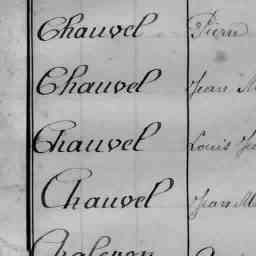 Chauvel Pierre
Chauvel Jean M
Chauvel Louis
Chauvel Jean M